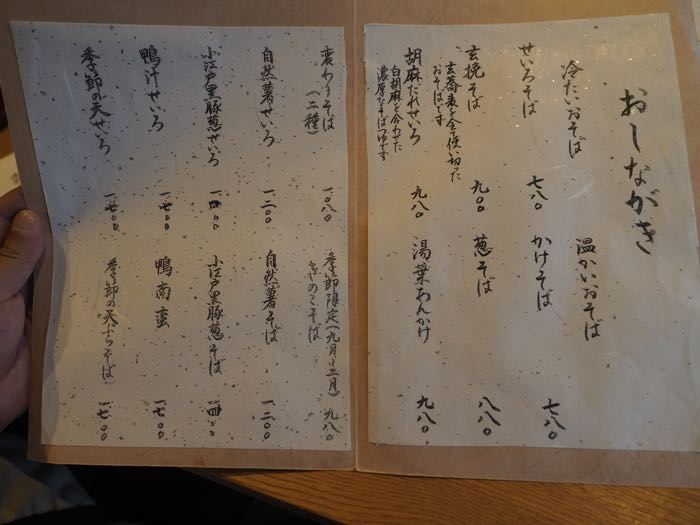 おしながき
冷たいおそば
せいろそば 七八〇
玄挽そば 九〇〇
玄蕎麦を全て使い切った
おそばです
胡麻だれせいろ 九八〇
白胡麻を合わせた
濃厚なそばつゆです
温かいおそば
かけそば 七八〇
葱そば 八八〇
湯葉あんかけ 九八〇
変わりそば
(二種) 一〇八〇
自然薯せいろ 一二〇〇
小江戸黒豚葱せいろ 一四〇〇
鴨汁せいろ 一七〇〇
季節の天せいろ 一七〇〇
季節限定(九月~三月)
きのこそば 九八〇
自然薯そば 一二〇〇
小江戸黒豚葱そば 一四〇〇
鴨南蛮 一七〇〇
季節の天ぷらそば 一七〇〇